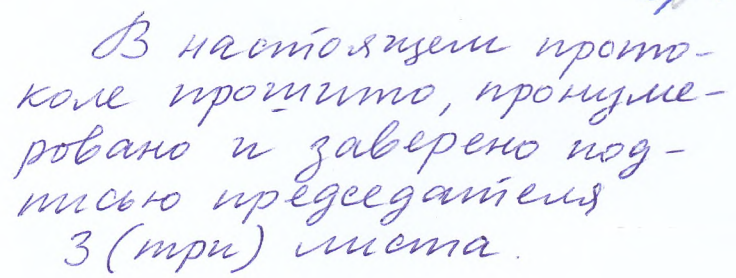 В настоящем прото-
коле прошито, пронуме-
ровано и заверено под-
писью председателя
3 (три) листа.